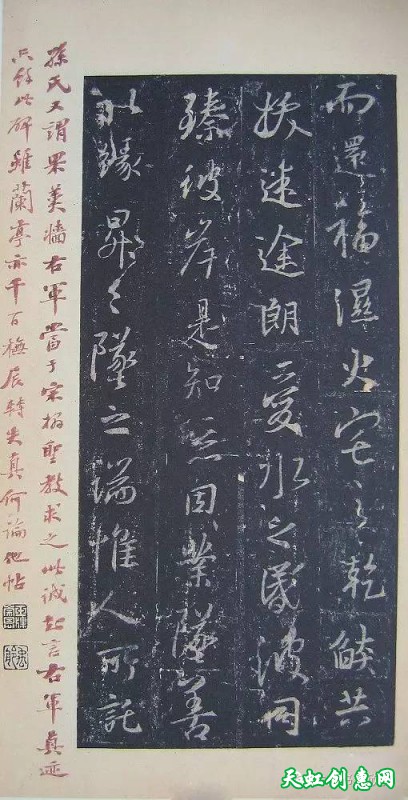 而還福濕火宅之乾焰共
拔迷途朗愛水之昏波同
臻彼岸是知惡因業墜善
以緣昇々墜之端惟人所託
孫氏又謂果羡牆右軍當于宋搨聖教求之此誠知言右軍真迹
只餘此碑雖蘭亭亦千百轉失真何論他帖
天虹创惠网